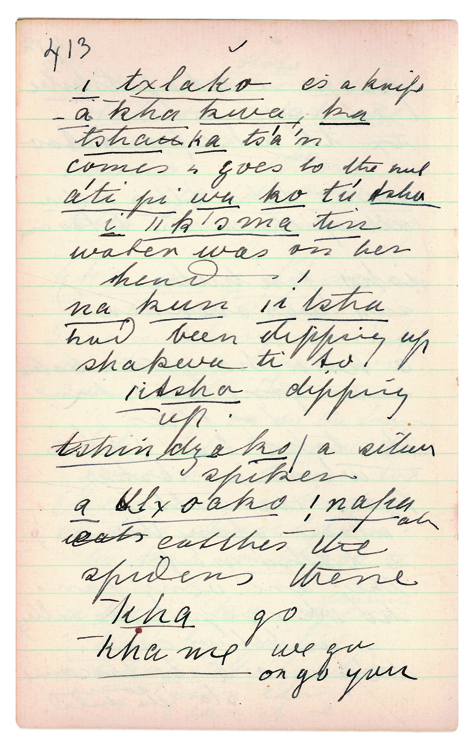 413
i txlako is a knife
a kha kwa, ka
tshauka tsá'n
comes & goes to the
áti pi wa ko tú tsha
i llk'sma tin
water was on her
head
na kun íi tsha
had been dipping up
shakwa ti to
iitsha dipping
up.
tshin dzako / a
a tlxoako ! napa
eats catches the
spiders there
kha go
kha me we go
or go you